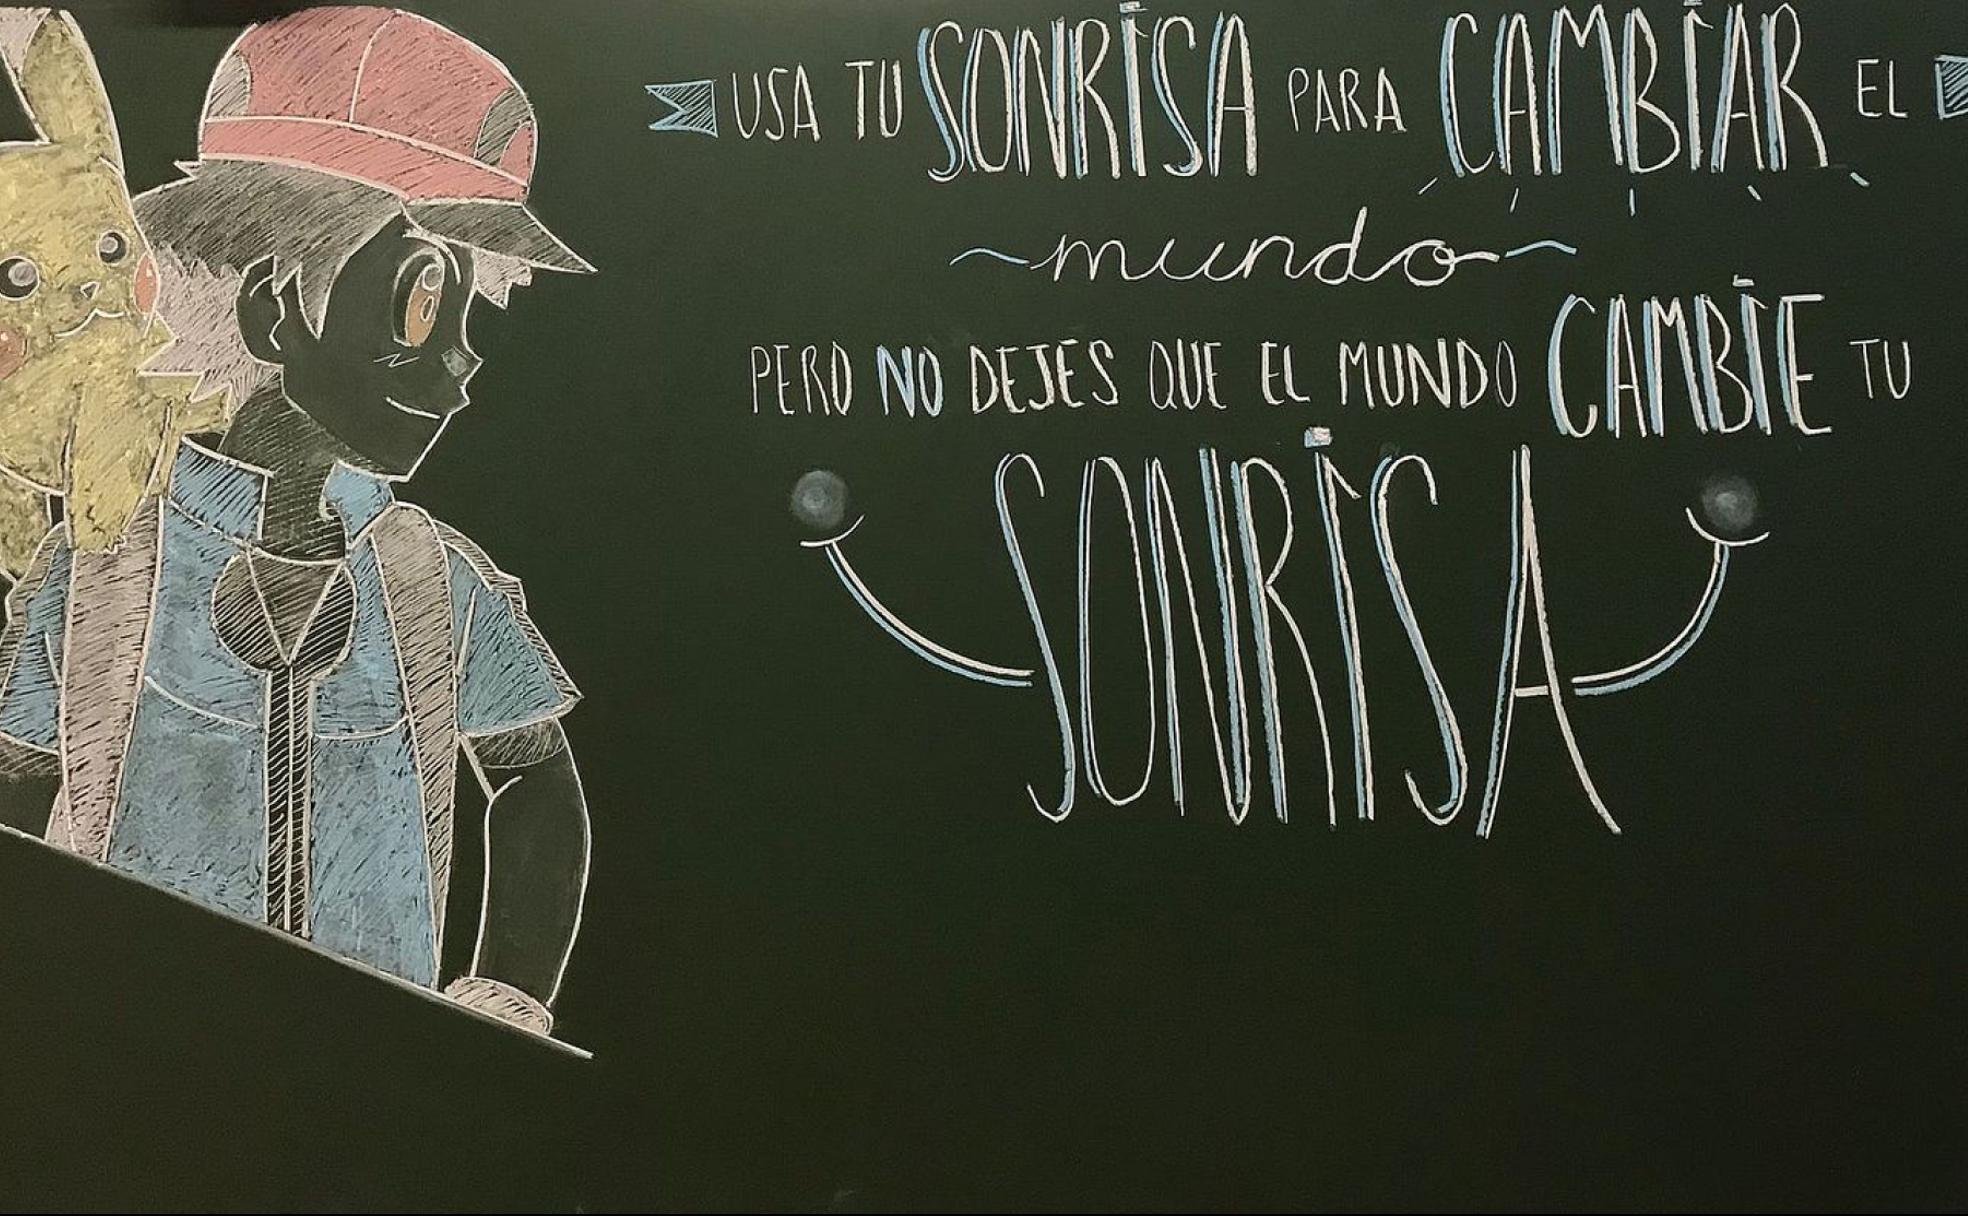 USA TU SONRISA PARA CAMBIAR EL
mundo
PERO NO DEJES QUE EL MUNDO CAMBIE TU
SONRISA